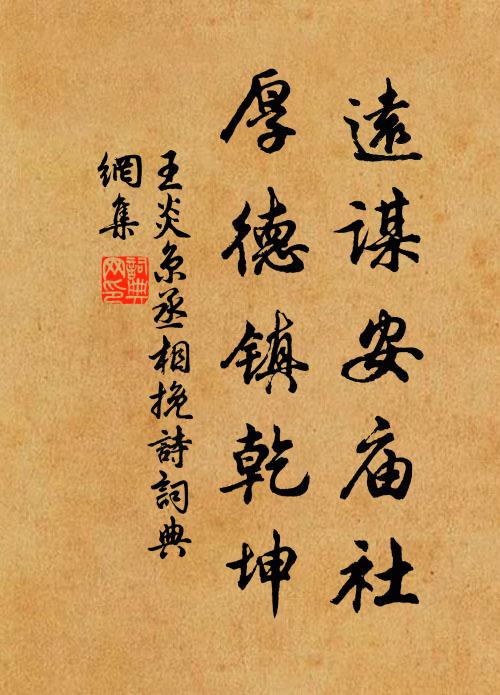 遠謀安庙社
厚德镇乾坤
王炎京丞相挽詩詞典
網集
詞典
网印